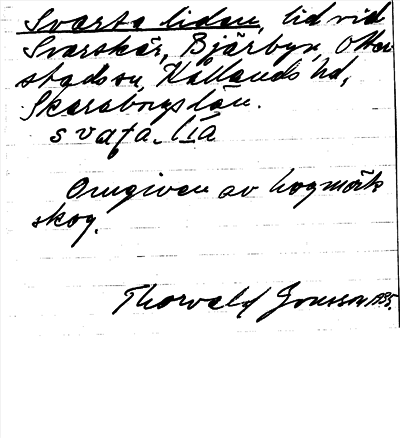 Svarta lidan, lid vid
Svarskär, Bjärbyn, Otter
stads sn, Kållands hd,
Skaraborgs län.
Omgiven av hogmörk
skog.
Thorvald Jonsson 1935.